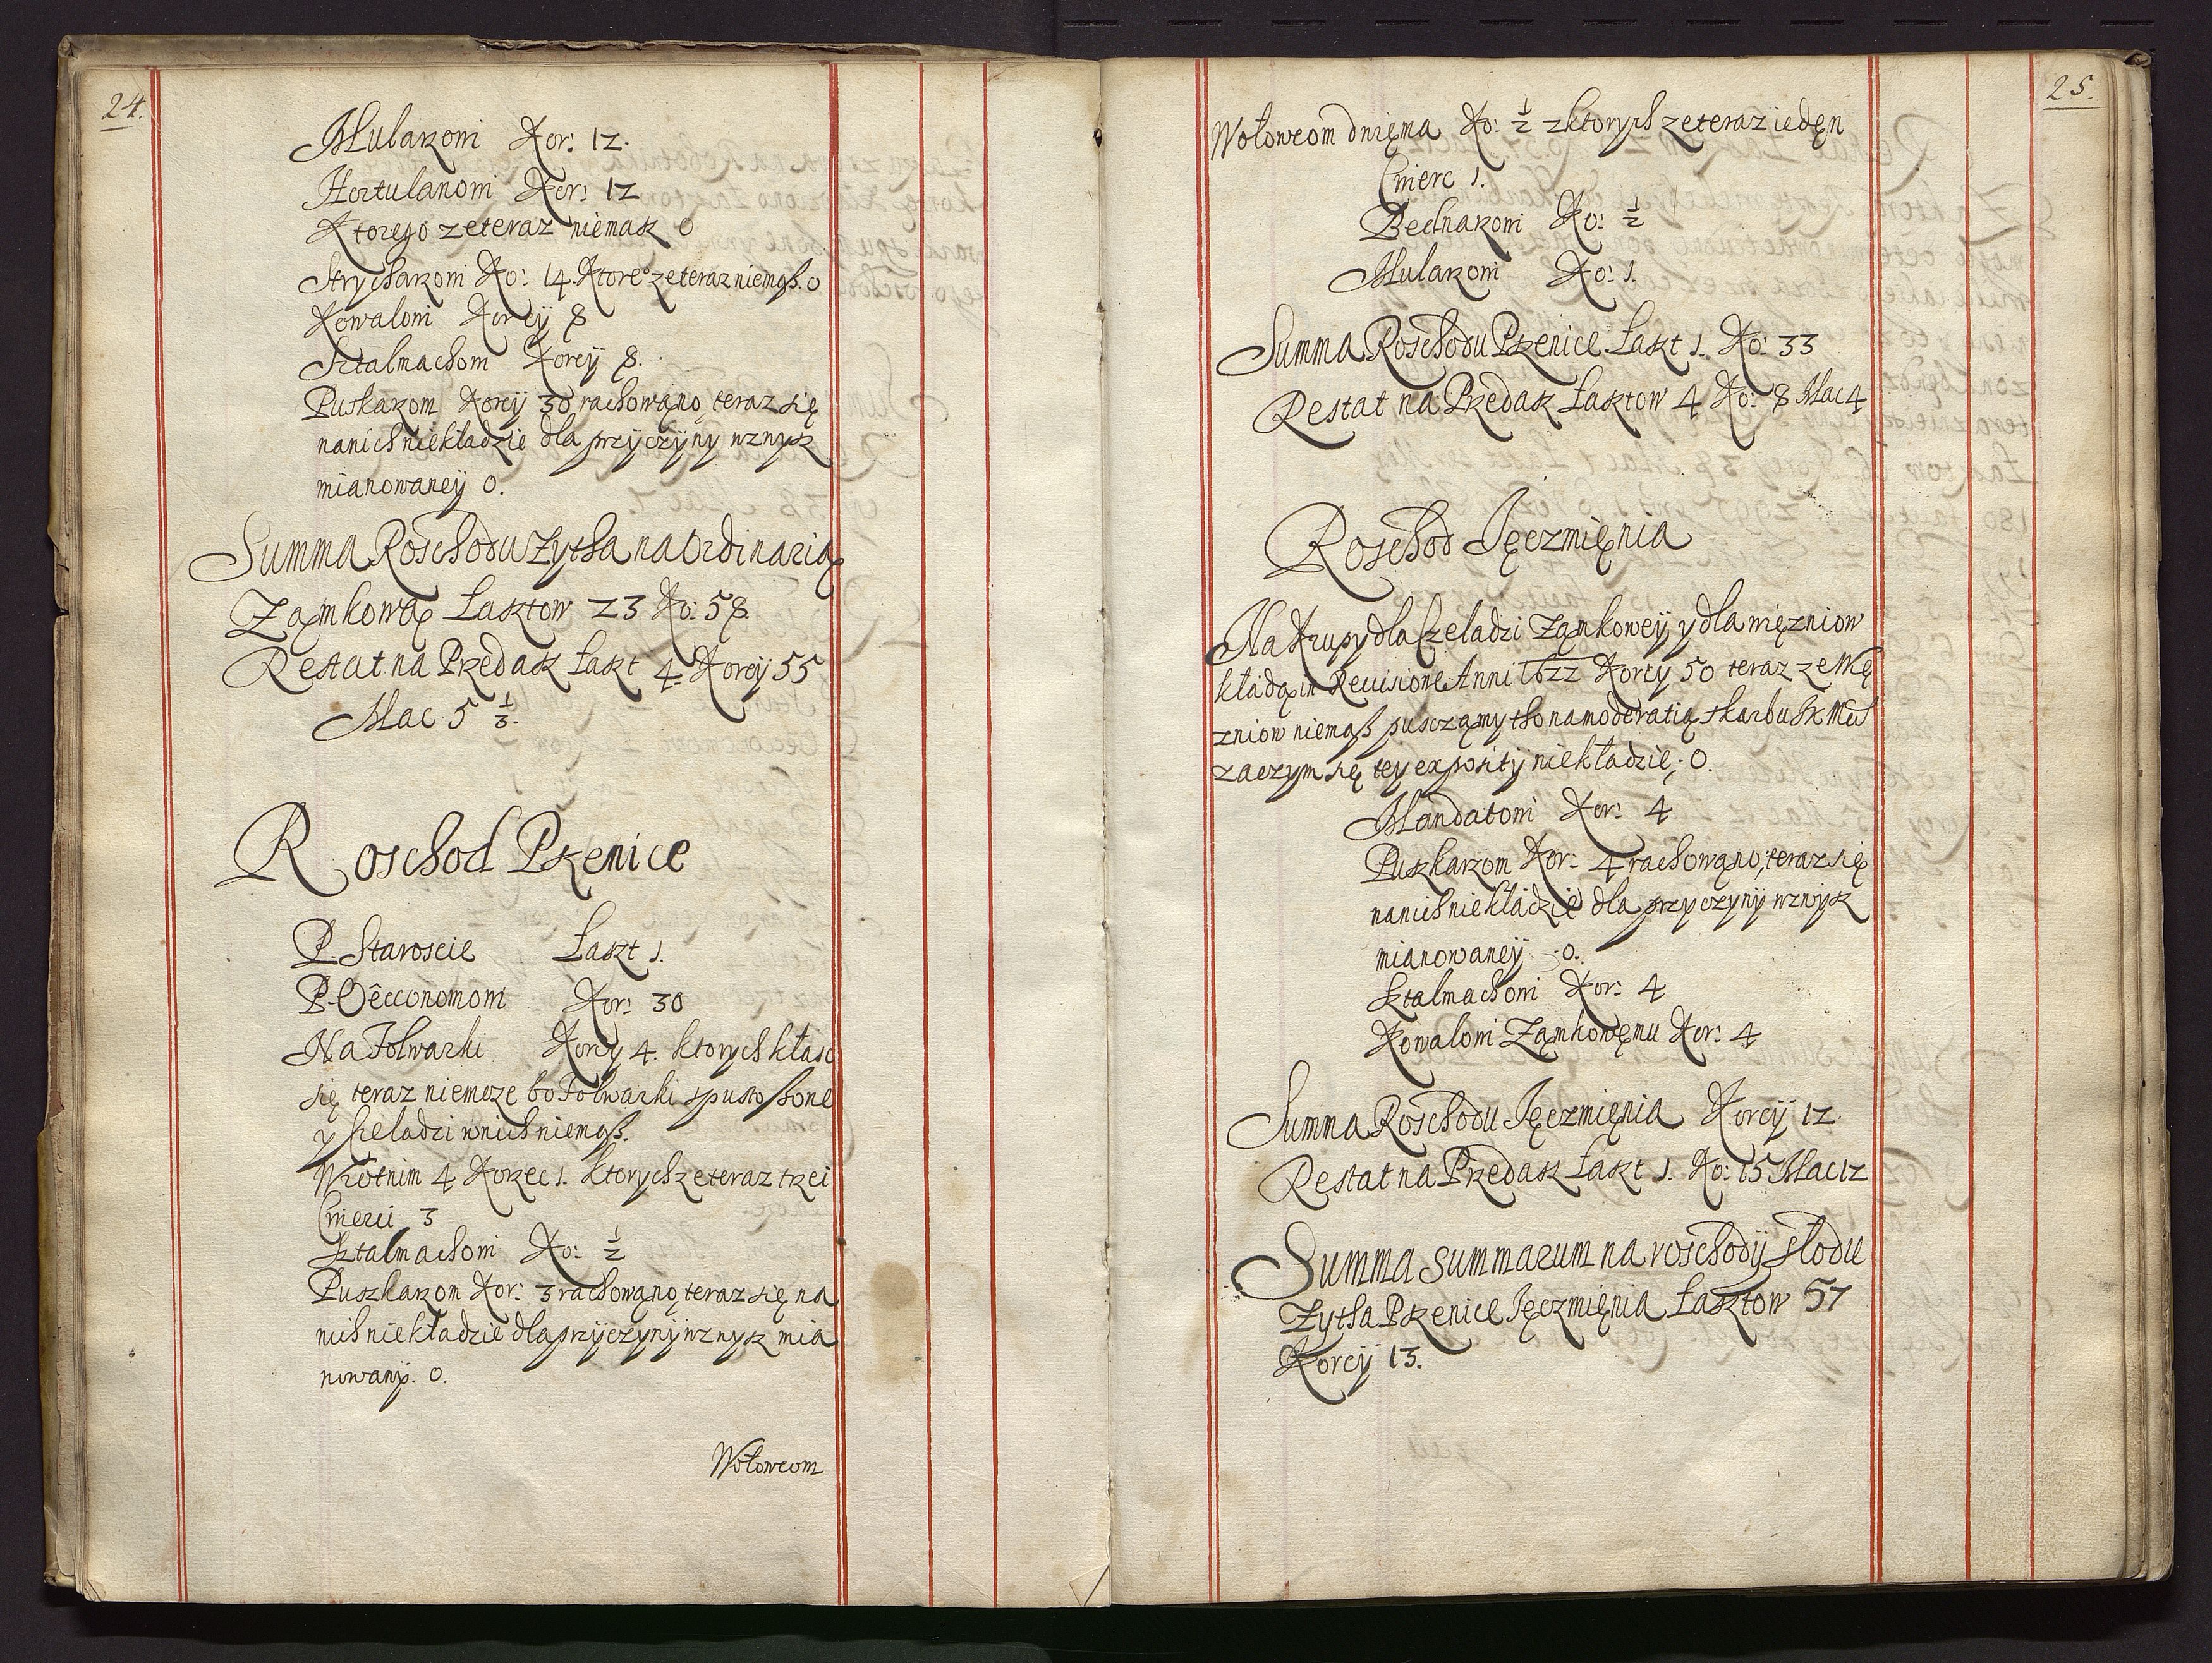 24.
Mularzowi Kor: 12.
Hortulanowi Kor: 12
Ktorego ze teraz niemasz 0
Strycharzowi Ko: 14. Ktore° ze teraz niemasz. 0
Kowalowi Korcÿ 8
Sztalmachom Korcÿ 8.
Puskarzom Korcÿ 30 rachowąno teraz się
nanich niekładzie dla przÿczÿnÿ wznÿsz
mianowaneÿ 0.
Summa Roschodu Zytha na Ordinarią
Ząmkową Łasztow 23 Ko: 58.
Restat na Przedasz Łaszt 4. Korcÿ 55
Mac 5 1/3.
Roschod Pszenice
P. Staroscie Łaszt 1.
P. Oêcconomowi Kor: 30
Na Folwarki Korcÿ 4. ktorych kłasc
się teraz niemoze bo Folwarki spustoszone
y Czeladzi wnich niemasz.
Wrotnim 4 Korzec 1. ktorych ze teraz trzei
Cwierci 3
Sztalmachowi Ko: 1/2
Puszkarzom Kor: 3 rachowąno teraz się na
nich niekładzie dla przÿczÿnÿ wznysz mia
nowanÿ. 0.
Wołowcom
25.
Wołowcom dwięma Ko: 1/2 z ktorych ze teraz iedęn
Cwierc 1.
Bednarzowi Ko: 1/2
Mularzowi Ko: 1.
Summa Roschodu Pszenice Łaszt 1. Ko: 33
Restat na Przedasz Łasztow 4 Ko: 8 Mac 4
Roschod Jęczmięnia
Na Krupy dla Czeladzi Ząmkoweÿ y dla więzniow
kładą in Reuisione Anni 1622 Korcÿ 50 teraz ze Wię
zniow niemasz pusczamy tho na moderatią skarbu
zaczym się teÿ exposity niekładzię. 0.
Mandatowi Kor: 4
Puszkarzom Kor: 4 rachowąno, teraz się
nanich niekładzie dla przyczynÿ wznÿsz
mianowaneÿ 0.
Sztalmachowi Kor: 4
Kowalowi Ząmkowęmu Kor: 4
Summa Roschodu Jęczmięnia Korcÿ 12.
Restat na Przedasz Łaszt 1. Ko: 15 Mac 12
Summa summarum na roschodÿ słodu
Zytha Pszenice Jęczmięnia Łasztow 57
Korcÿ 13.